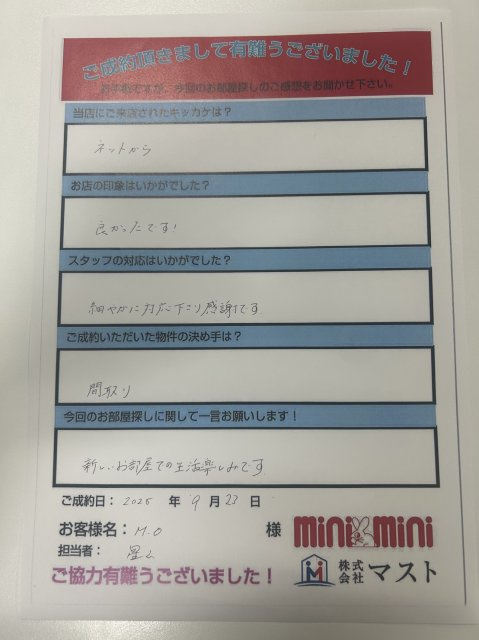 ご成約頂きまして有難うございました！
お手数ですが、今回のお部屋探しのご感想をお聞かせ下さい。
当店にご来店されたキッカケは？
ネットから
お店の印象はいかがでした？
良かったです!
スタッフの対応はいかがでした？
細やかに対応下さり感謝です
ご成約いただいた物件の決め手は？
間取り
今回のお部屋探しに関して一言お願いします！
新しいお部屋での生活楽しみです
ご成約日： 2025 年 9 月 23 日
お客様名： M.O 様
担当者：
ご協力有難うございました！
mini mini
株式会社 マスト